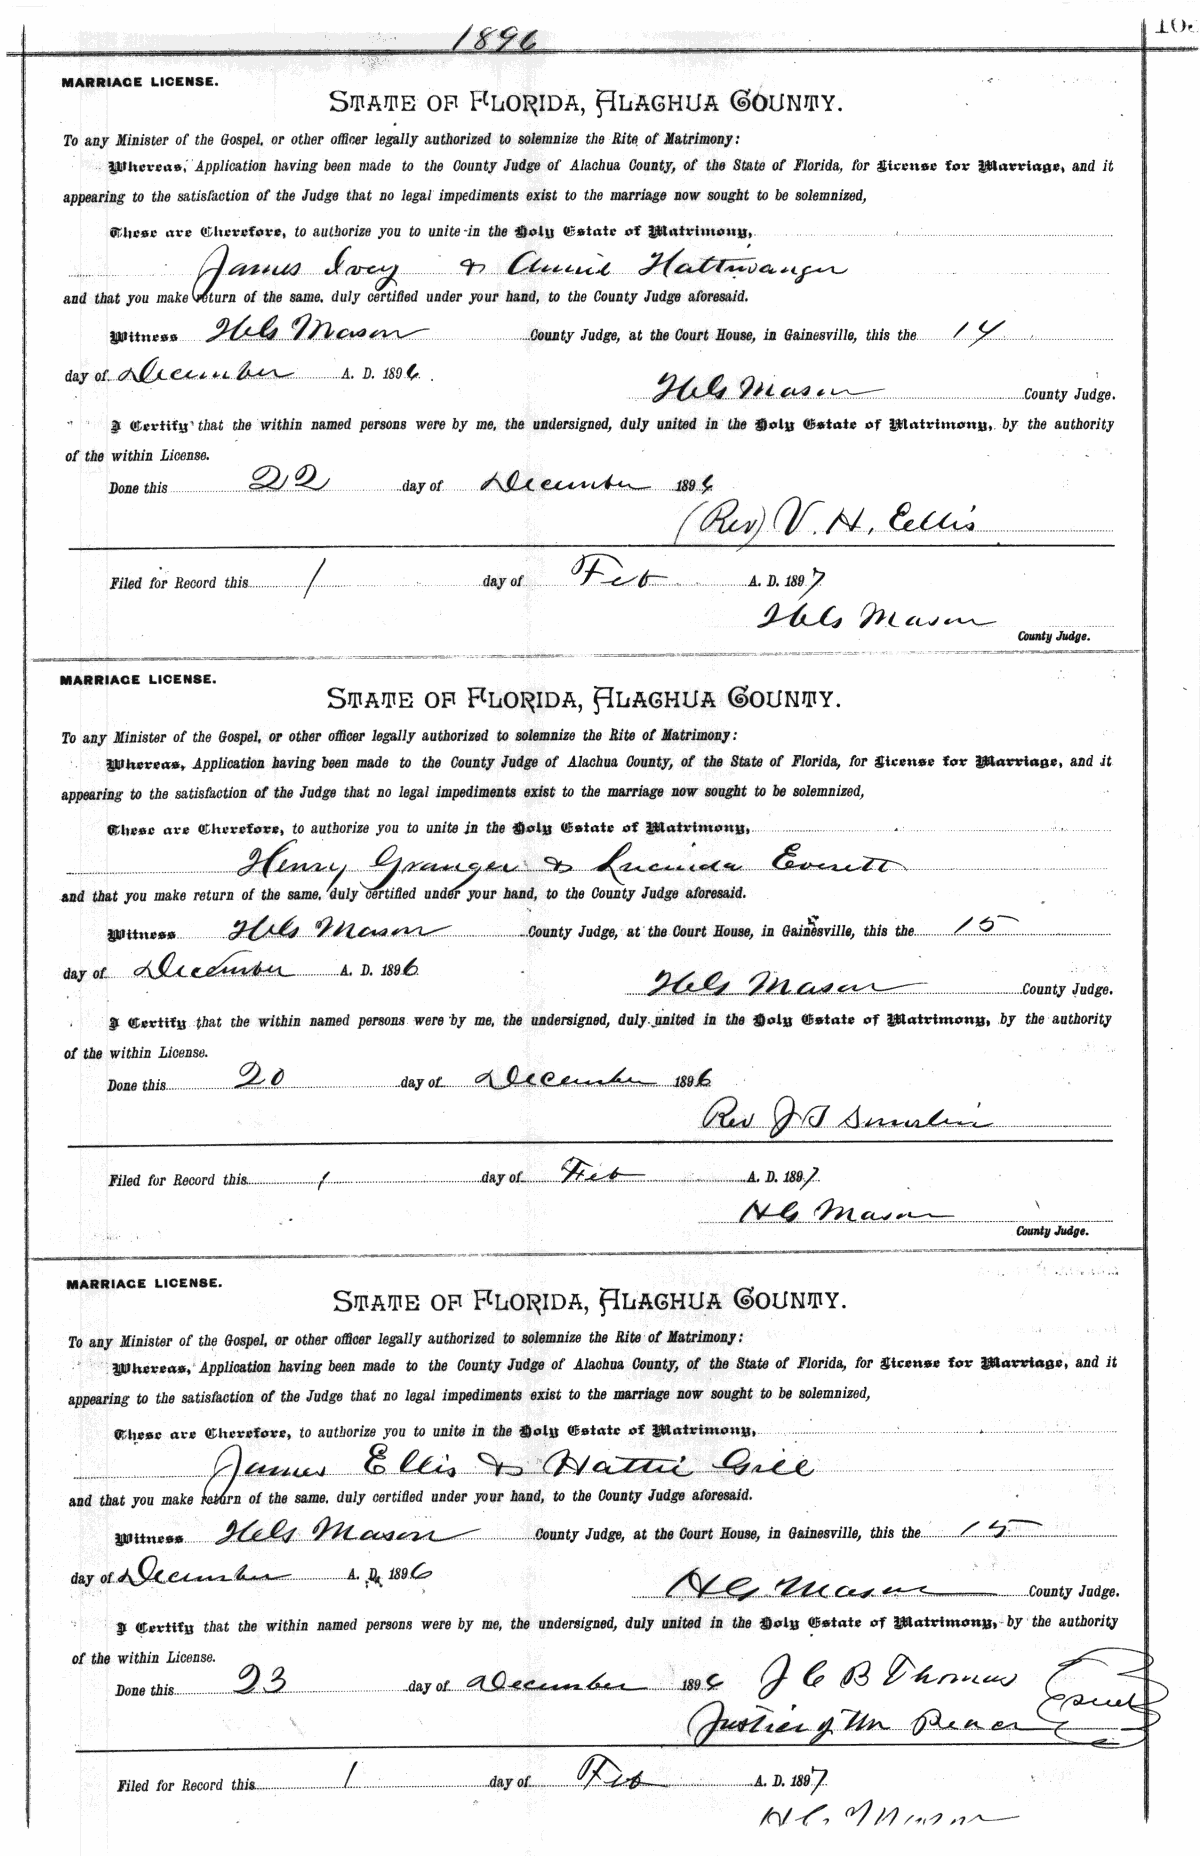 1896
MARRIAGE LICENSE.
STATE OF FLORIDA, ALACHUA COUNTY.
To any Minister of the Gospel, or other officer legally authorized to solemnize the Rite of Matrimony:
Whereas, Application having been made to the County Judge of Alachua County, of the State of Florida, for License for Marriage, and it
appearing to the satisfaction of the Judge that no legal impediments exist to the marriage now sought to be solemnized,
These are Therefore, to authorize you to unite in the Holy Estate of Matrimony,
James Ivey & Annie Hattiwanger
and that you make return of the same, duly certified under your hand, to the County Judge aforesaid.
Witness H G Mason County Judge, at the Court House, in Gainesville, this the 14
day of December A. D. 1896.
H G Mason County Judge.
I Certify that the within named persons were by me, the undersigned, duly united in the Holy Estate of Matrimony, by the authority
of the within License.
Done this 22 day of December 1896
(Rev) V. H. Ellis
Filed for Record this 1 day of Feb A. D. 1897
H G Mason
County Judge.
MARRIAGE LICENSE.
STATE OF FLORIDA, ALACHUA COUNTY.
To any Minister of the Gospel, or other officer legally authorized to solemnize the Rite of Matrimony:
Whereas, Application having been made to the County Judge of Alachua County, of the State of Florida, for License for Marriage, and it
appearing to the satisfaction of the Judge that no legal impediments exist to the marriage now sought to be solemnized,
These are Therefore, to authorize you to unite in the Holy Estate of Matrimony,
Henry Granger & Lucinda Everett
and that you make return of the same, duly certified under your hand, to the County Judge aforesaid.
Witness H G Mason County Judge, at the Court House, in Gainesville, this the 15
day of December A. D. 1896
H G Mason County Judge.
I Certify that the within named persons were by me, the undersigned, duly united in the Holy Estate of Matrimony, by the authority
of the within License.
Done this 20 day of December 1896
Rev J T
Filed for Record this 1 day of Feb A. D. 1897
H G Mason
County Judge.
MARRIAGE LICENSE.
STATE OF FLORIDA, ALACHUA COUNTY.
To any Minister of the Gospel, or other officer legally authorized to solemnize the Rite of Matrimony:
Whereas, Application having been made to the County Judge of Alachua County, of the State of Florida, for License for Marriage, and it
appearing to the satisfaction of the Judge that no legal impediments exist to the marriage now sought to be solemnized,
These are Therefore, to authorize you to unite in the Holy Estate of Matrimony,
James Ellis & Hattie Gill
and that you make return of the same, duly certified under your hand, to the County Judge aforesaid.
Witness H G Mason County Judge, at the Court House, in Gainesville, this the 15
day of December A. D. 1896
H G Mason County Judge.
I Certify that the within named persons were by me, the undersigned, duly united in the Holy Estate of Matrimony, by the authority
of the within License.
Done this 23 day of December 1896 J C B Thomas
Justice of the Peace
Filed for Record this 1 day of Feb A. D. 1897
H G Mason